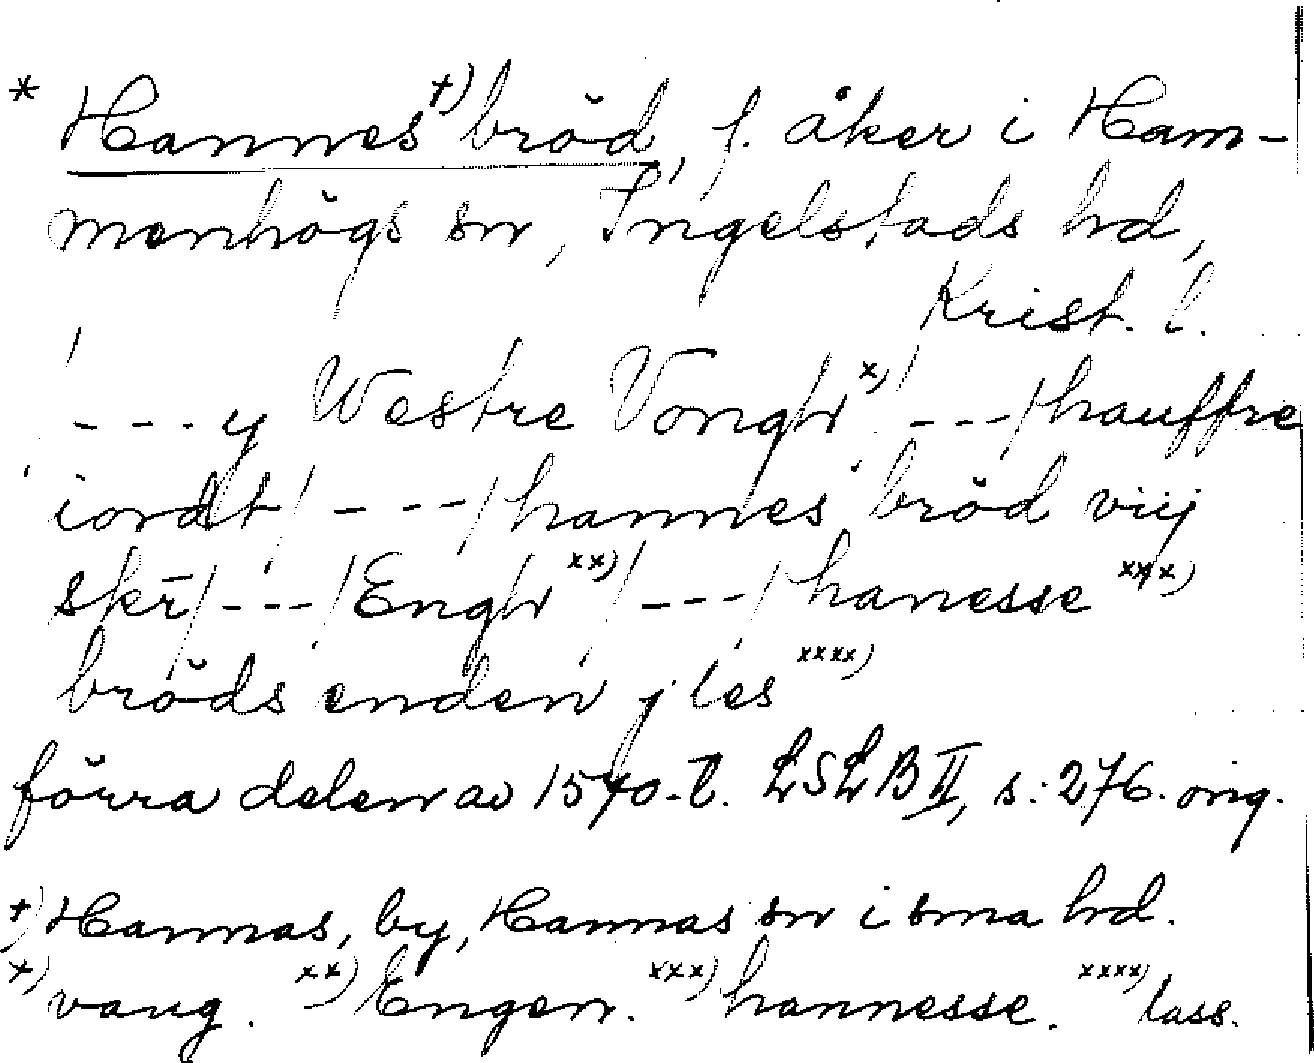 * Hannes †) bröd, f. åker i Ham-
menhögs sn, Ingelstads hd,
Krist. l.
/---y Westre Vongh x) /---/hauffre
iordt/ ---/hannes bröd viij
skr̄/---/Engh xx) /---/hanesse xxx)
bröds enden j les xxxx)
förra delen av 1570-t. LSLB II, s. 276. orig.
†) Hannas, by, Hannas sn i sma hd.
x) vang. xx) Engen. xxx) hannesse. xxxx) lass.